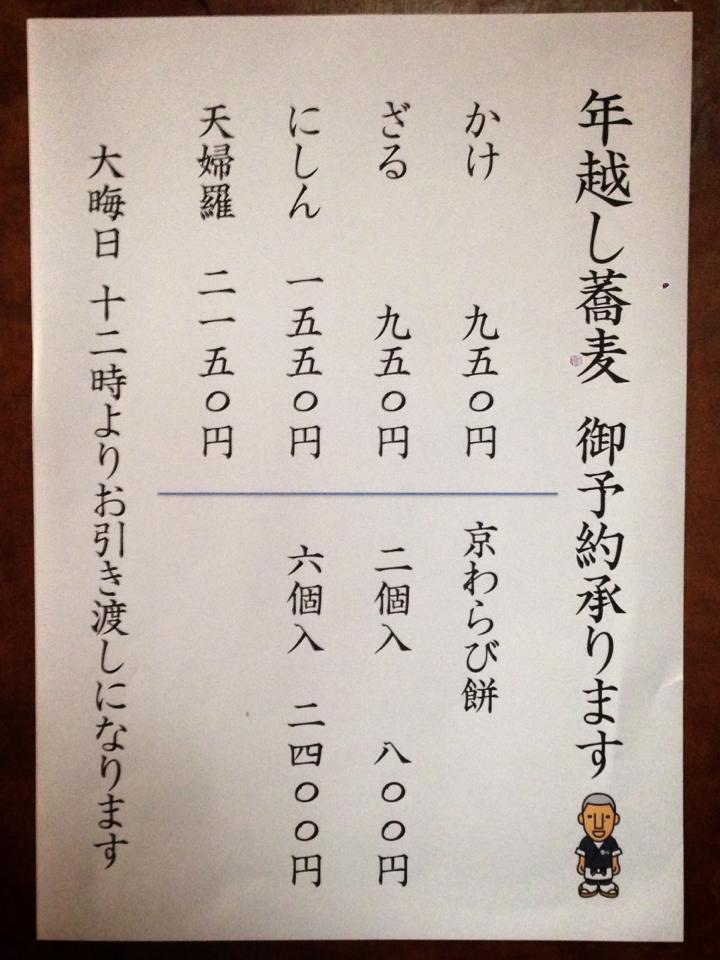 年越し蕎麦 御予約承ります
かけ 九五〇円
ざる 九五〇円
にしん 一五五〇円
天婦羅 二一五〇円
京わらび餅
二個入 八〇〇円
六個入 二四〇〇円
大晦日 十二時よりお引き渡しになります